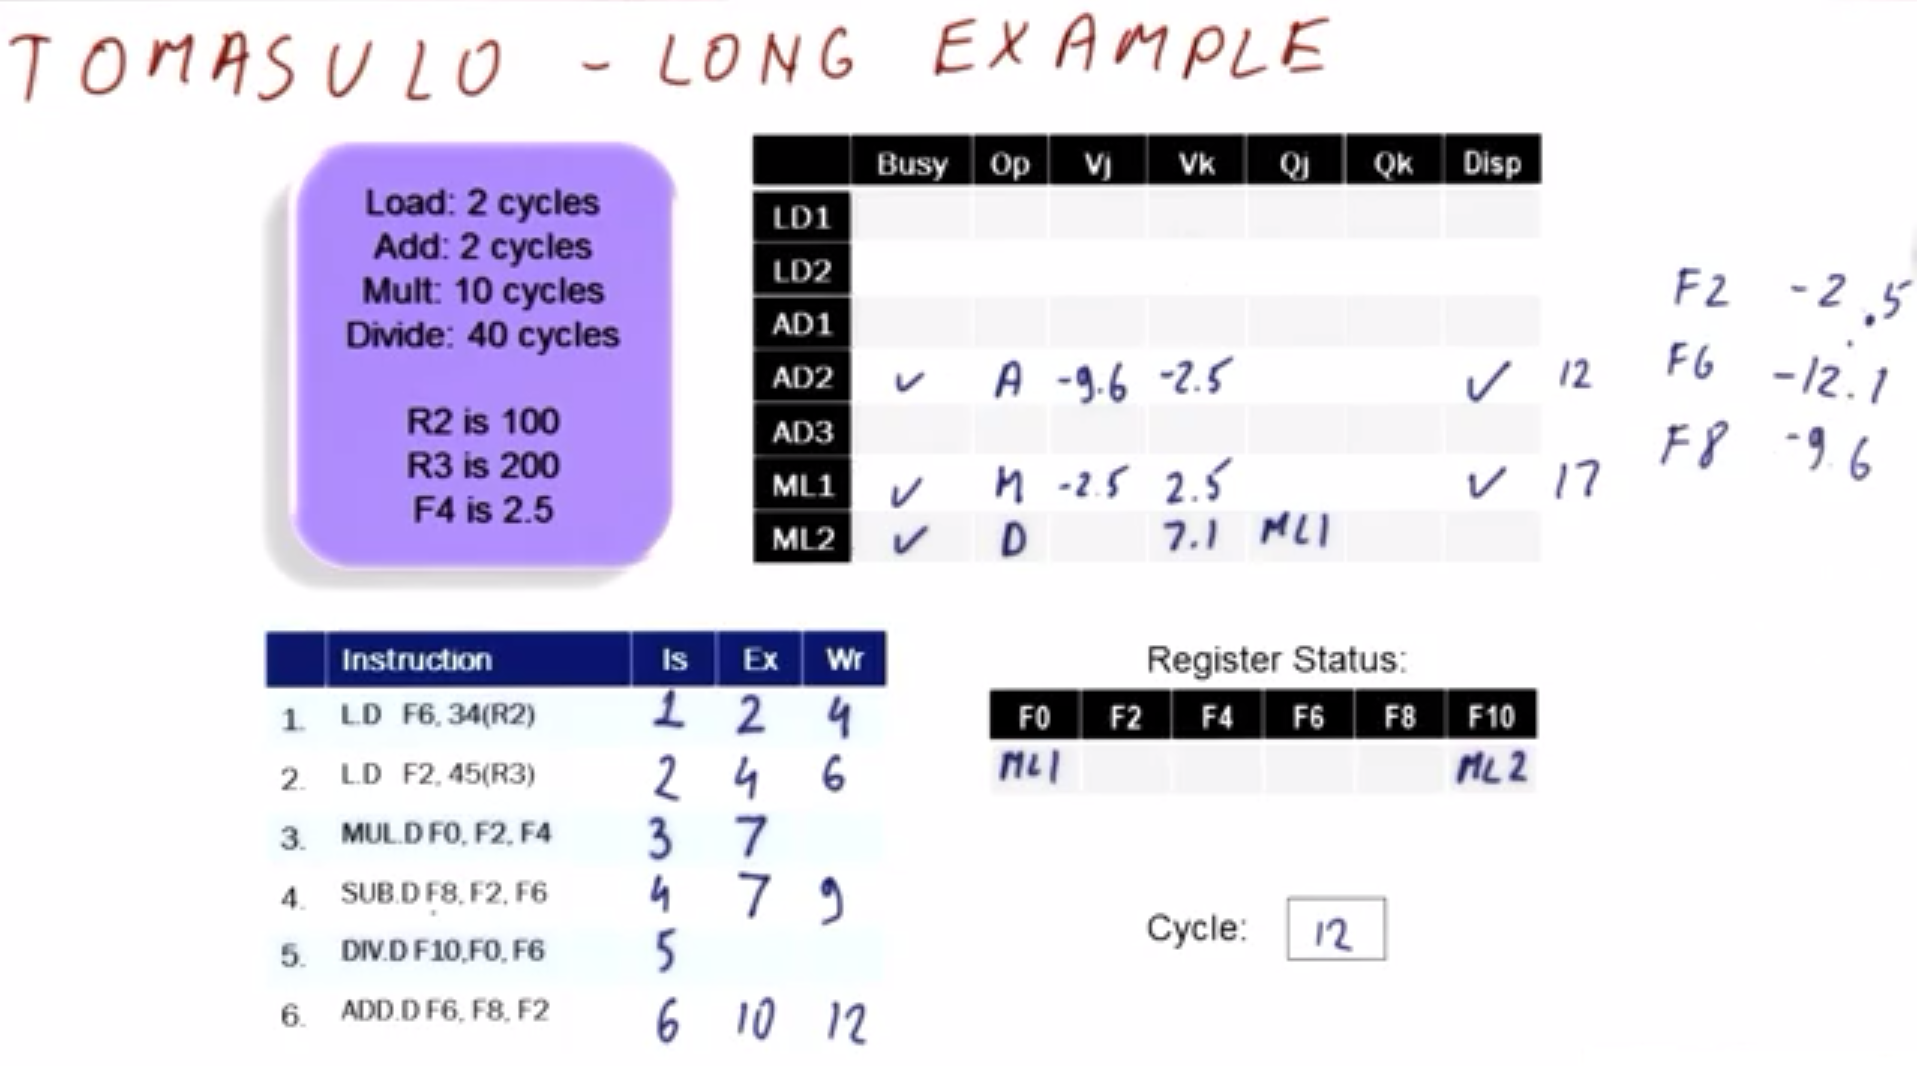 TOMASULO - LONG EXAMPLE
Load: 2 cycles
Add: 2 cycles
Mult: 10 cycles
Divide: 40 cycles
R2 is 100
R3 is 200
F4 is 2.5
Busy Op Vj Vk Qj Qk Disp
LD1
LD2
AD1
AD2 ✓ A -9.6 -2.5 ✓ 12
AD3
ML1 ✓ M -2.5 2.5 ✓ 17
ML2 ✓ D 7.1 ML1
F2 -2.5
F6 -12.1
F8 -9.6
Instruction Is Ex Wr
1. L.D F6, 34(R2) 1 2 4
2. L.D F2, 45(R3) 2 4 6
3. MUL.D F0, F2, F4 3 7
4. SUB.D F8, F2, F6 4 7 9
5. DIV.D F10,F0, F6 5
6. ADD.D F6, F8, F2 6 10 12
Register Status:
F0 F2 F4 F6 F8 F10
ML1 ML2
Cycle: 12